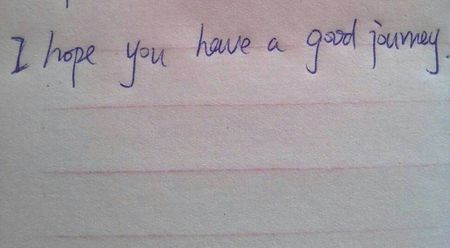 I hope you have a good journey.